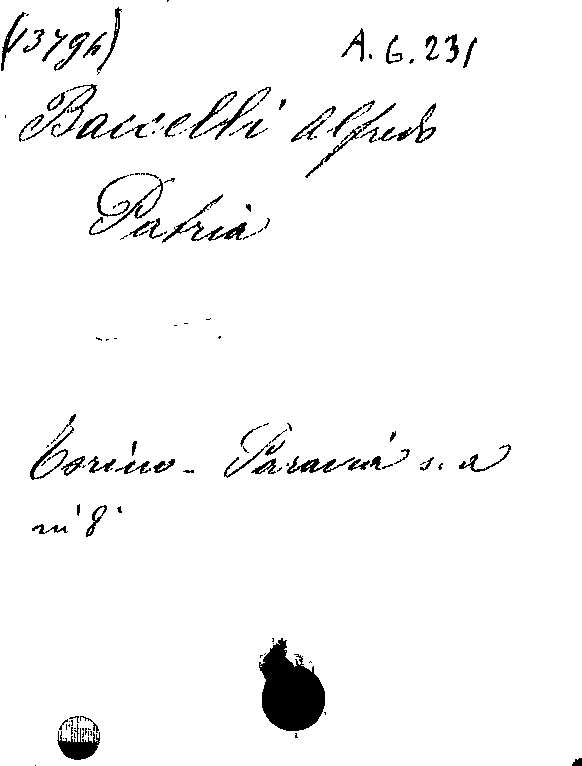 A.6.231
Baccelli Alfredo
Patria
Torino - Paravia s. a
in 8°